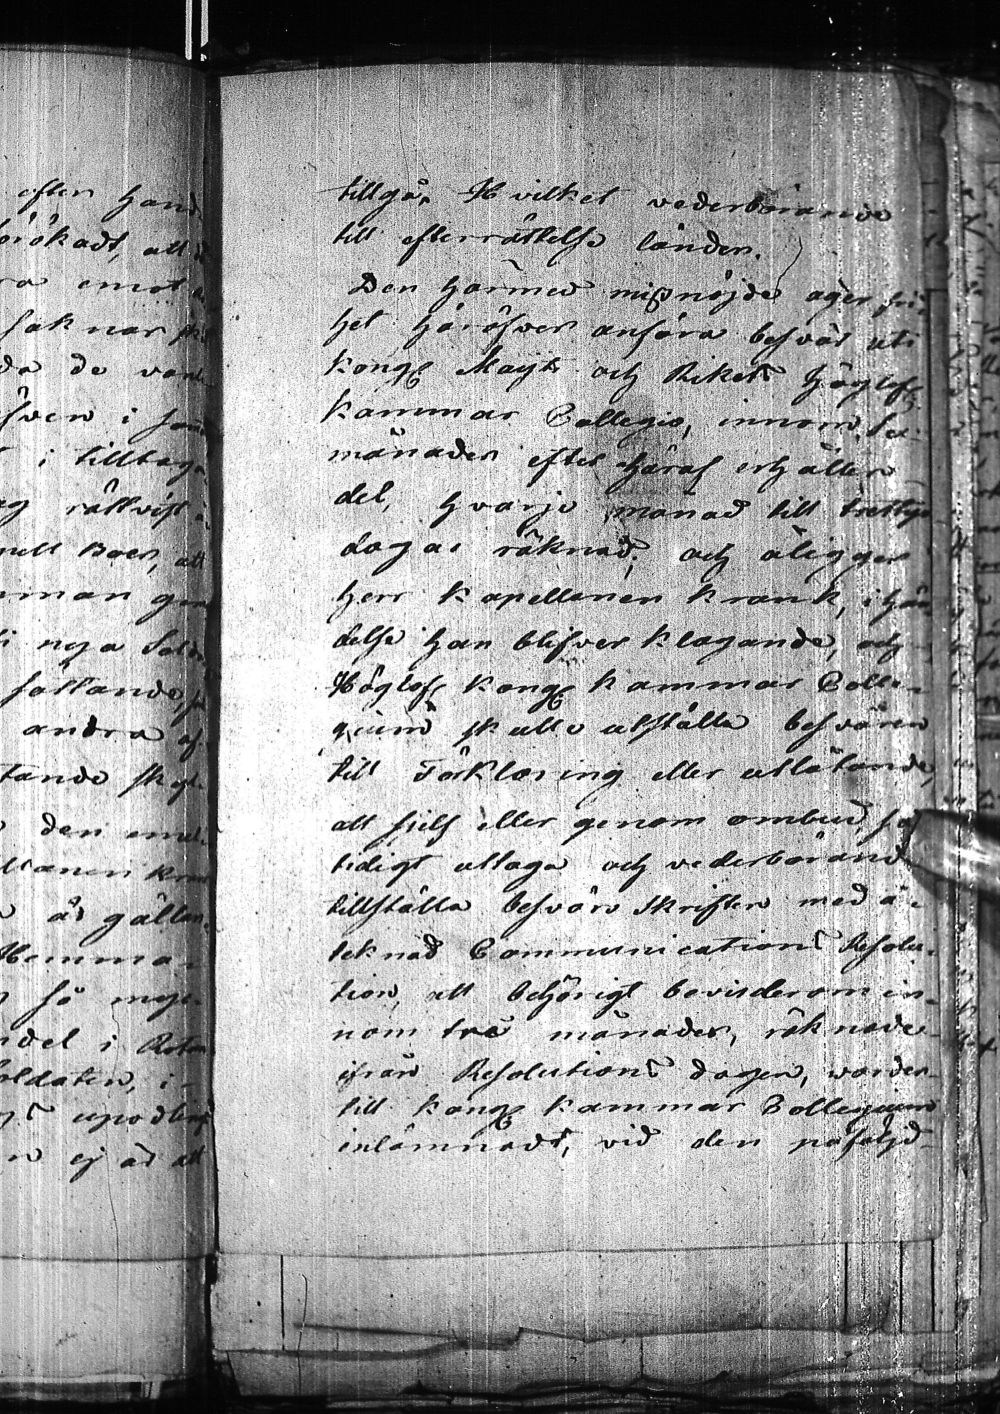 efter hand
förökadt, att
emot
saknar
da de
i
i tilltag
rättvist
Boer, att
man
nya
fallande
andra
tande
den
är gällan
Hemma
så myc
del i Rota
oldaten, i
ej är att
tillgå. Hvilket vederbörande
till efterrättelse länder.
Den härmed missnöjde äger fri
het häröfver anföra besvär uti
Kongl Majts och Rikets Höglofl
Kammar Collegio, innom sex
månader efter häraf erhållen
del, hvarje månad till trettijo
dagar räknad, och åligger
Herr Kapellanen Krank, i hän
delse han blifver klagande, och
Höglofl Kongl Kammar Colle-
gium skulle utställa besvären
till Förklaring eller utlåtande,
att sjelf eller genom ombud, så
tidigt uttaga och vederbörande
tillställa besvärs skriften med å-
teknad Communications Resolu-
tion, att behörigt bevis derom in-
nom tre månader, räknade
ifrån Resolutions dagen, warder
till Kongl Kammar Collegium
inlämnadt, vid den påföljd